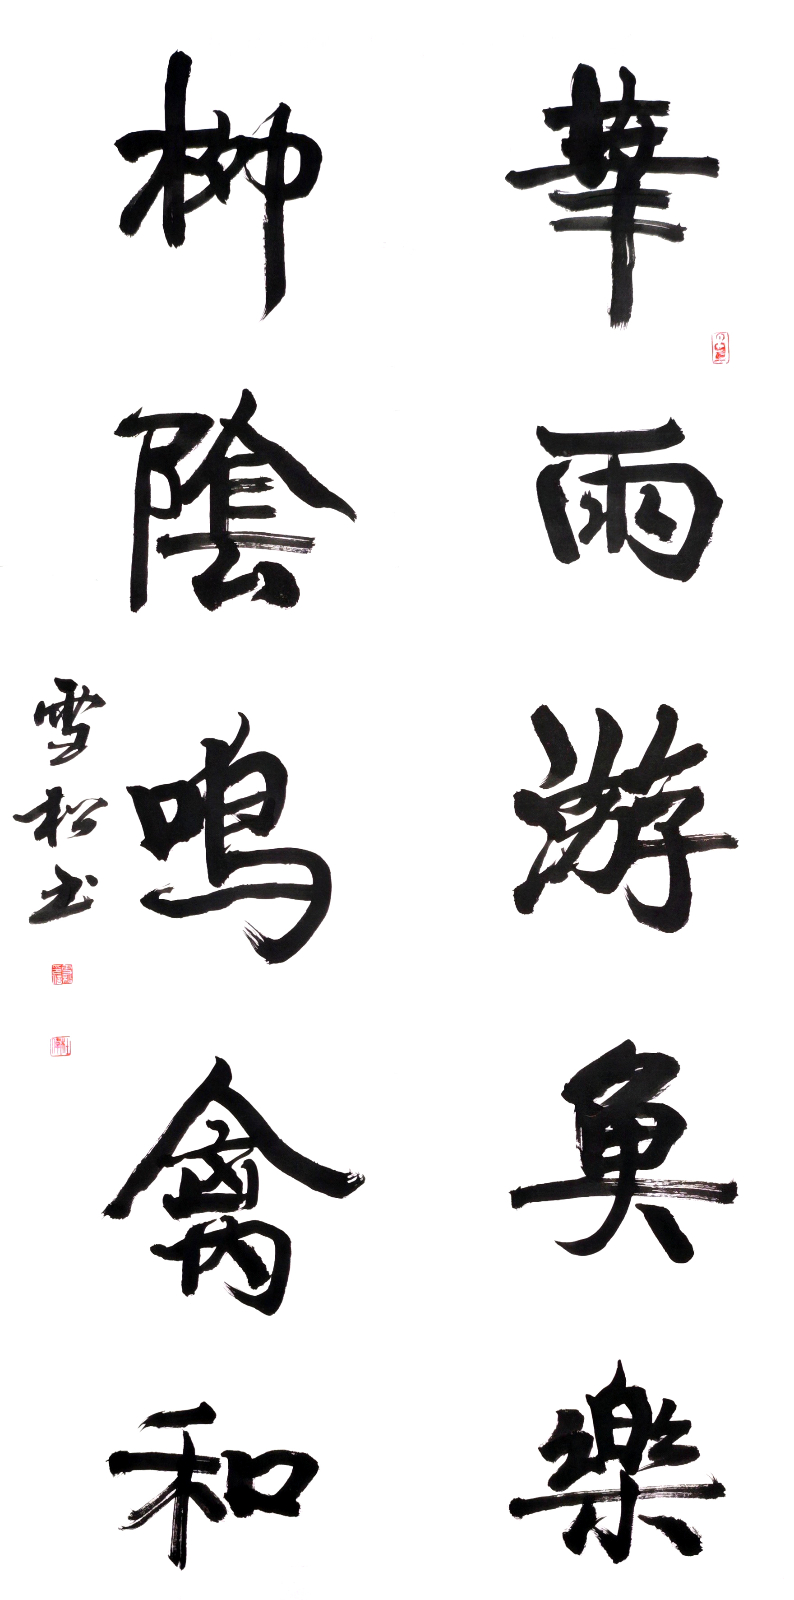 華雨游魚樂
柳陰鳴禽和
雪松书